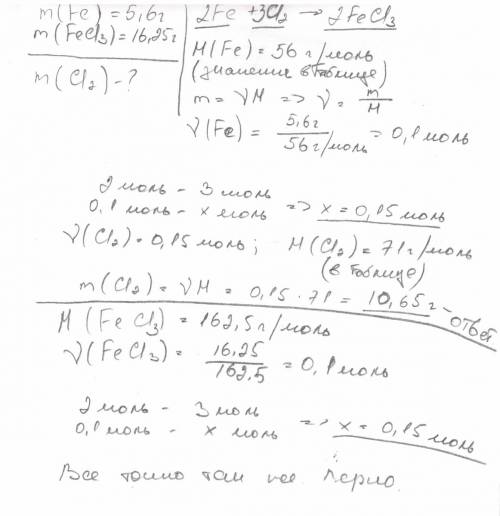 m(Fe) = 5,6г
m(FeCl3) = 16,25г
m(Cl2) - ?
2Fe + 3Cl2 → 2FeCl3
M(Fe) = 56 г/моль
(значение в таблице)
m = νM => ν = m/M
ν(Fe) = 5,6г / 56 г/моль = 0,1 моль
2 моль - 3 моль
0,1 моль - x моль => x = 0,15 моль
ν(Cl2) = 0,15 моль; M(Cl2) = 71 г/моль
(в таблице)
m(Cl2) = νM = 0,15 · 71 = 10,65 г - ответ
M(FeCl3) = 162,5 г/моль
ν(FeCl3) = 16,25 / 162,5 = 0,1 моль
2 моль - 3 моль
0,1 моль - x моль => x = 0,15 моль
Все точно так же верно.